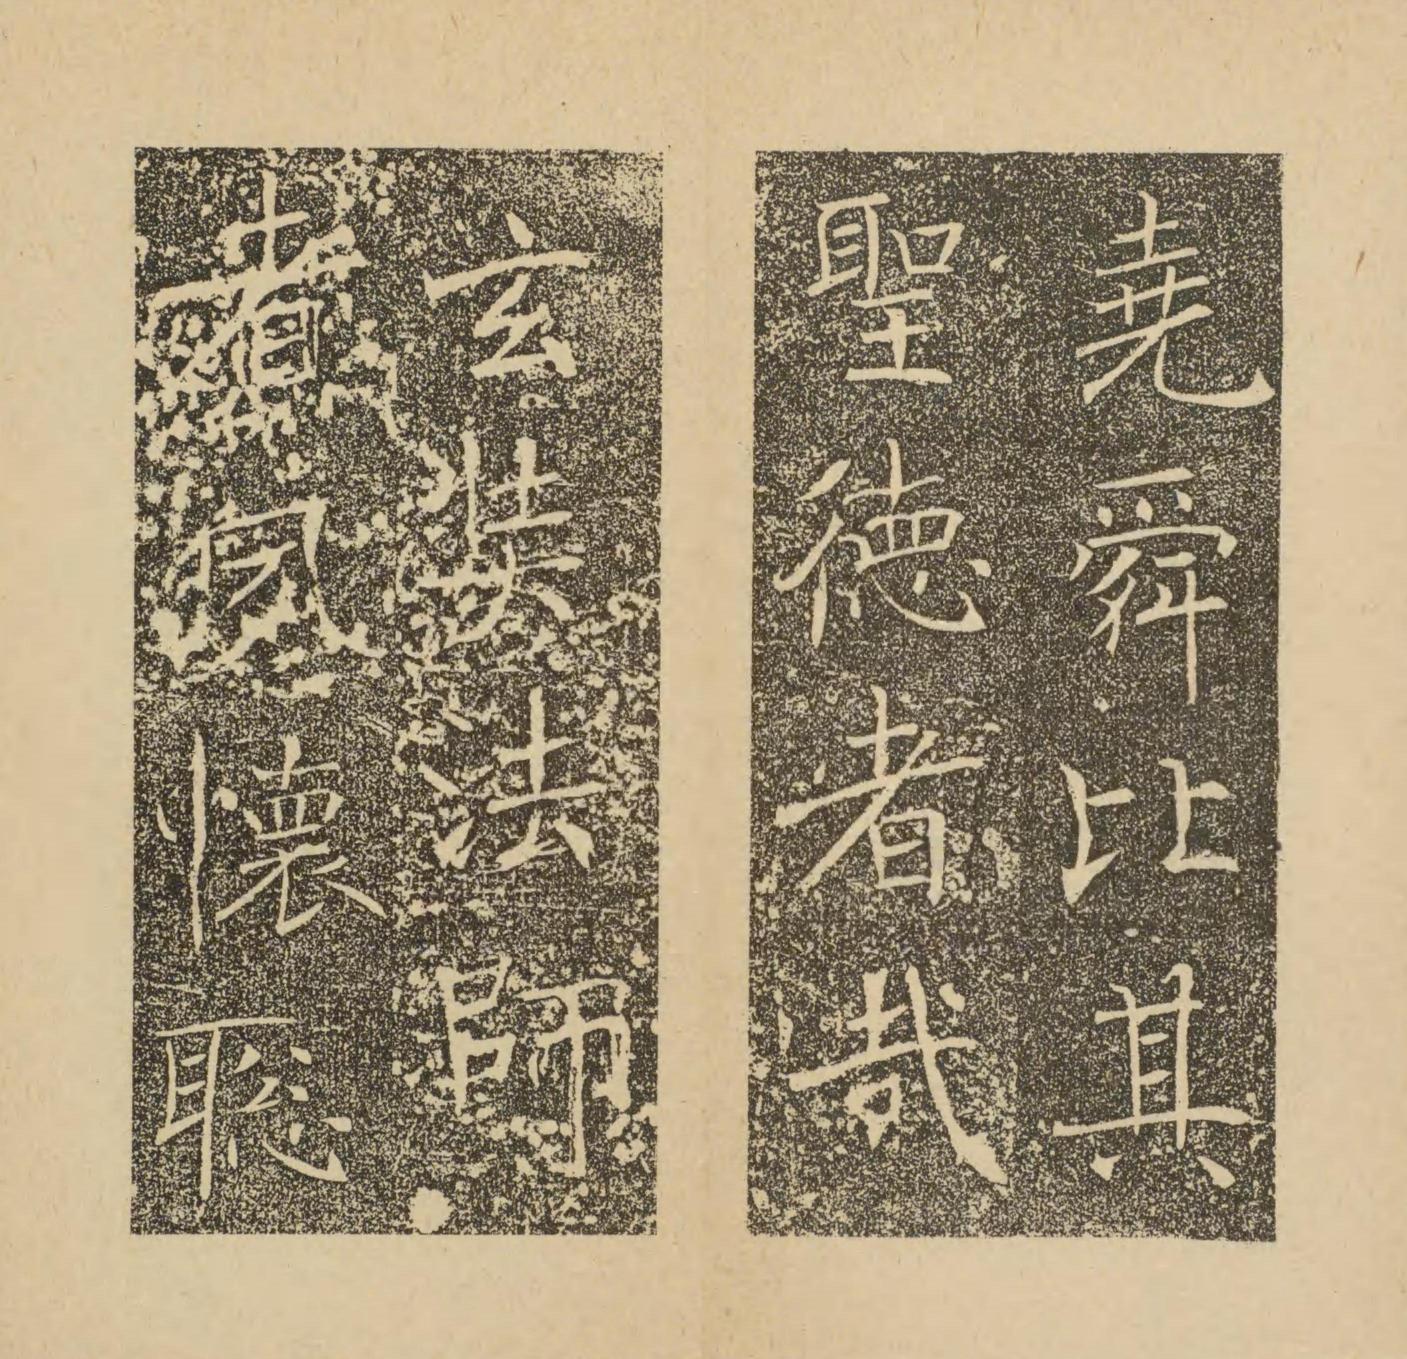 堯舜比其
聖德者哉
玄奘法師
者夙懷聡